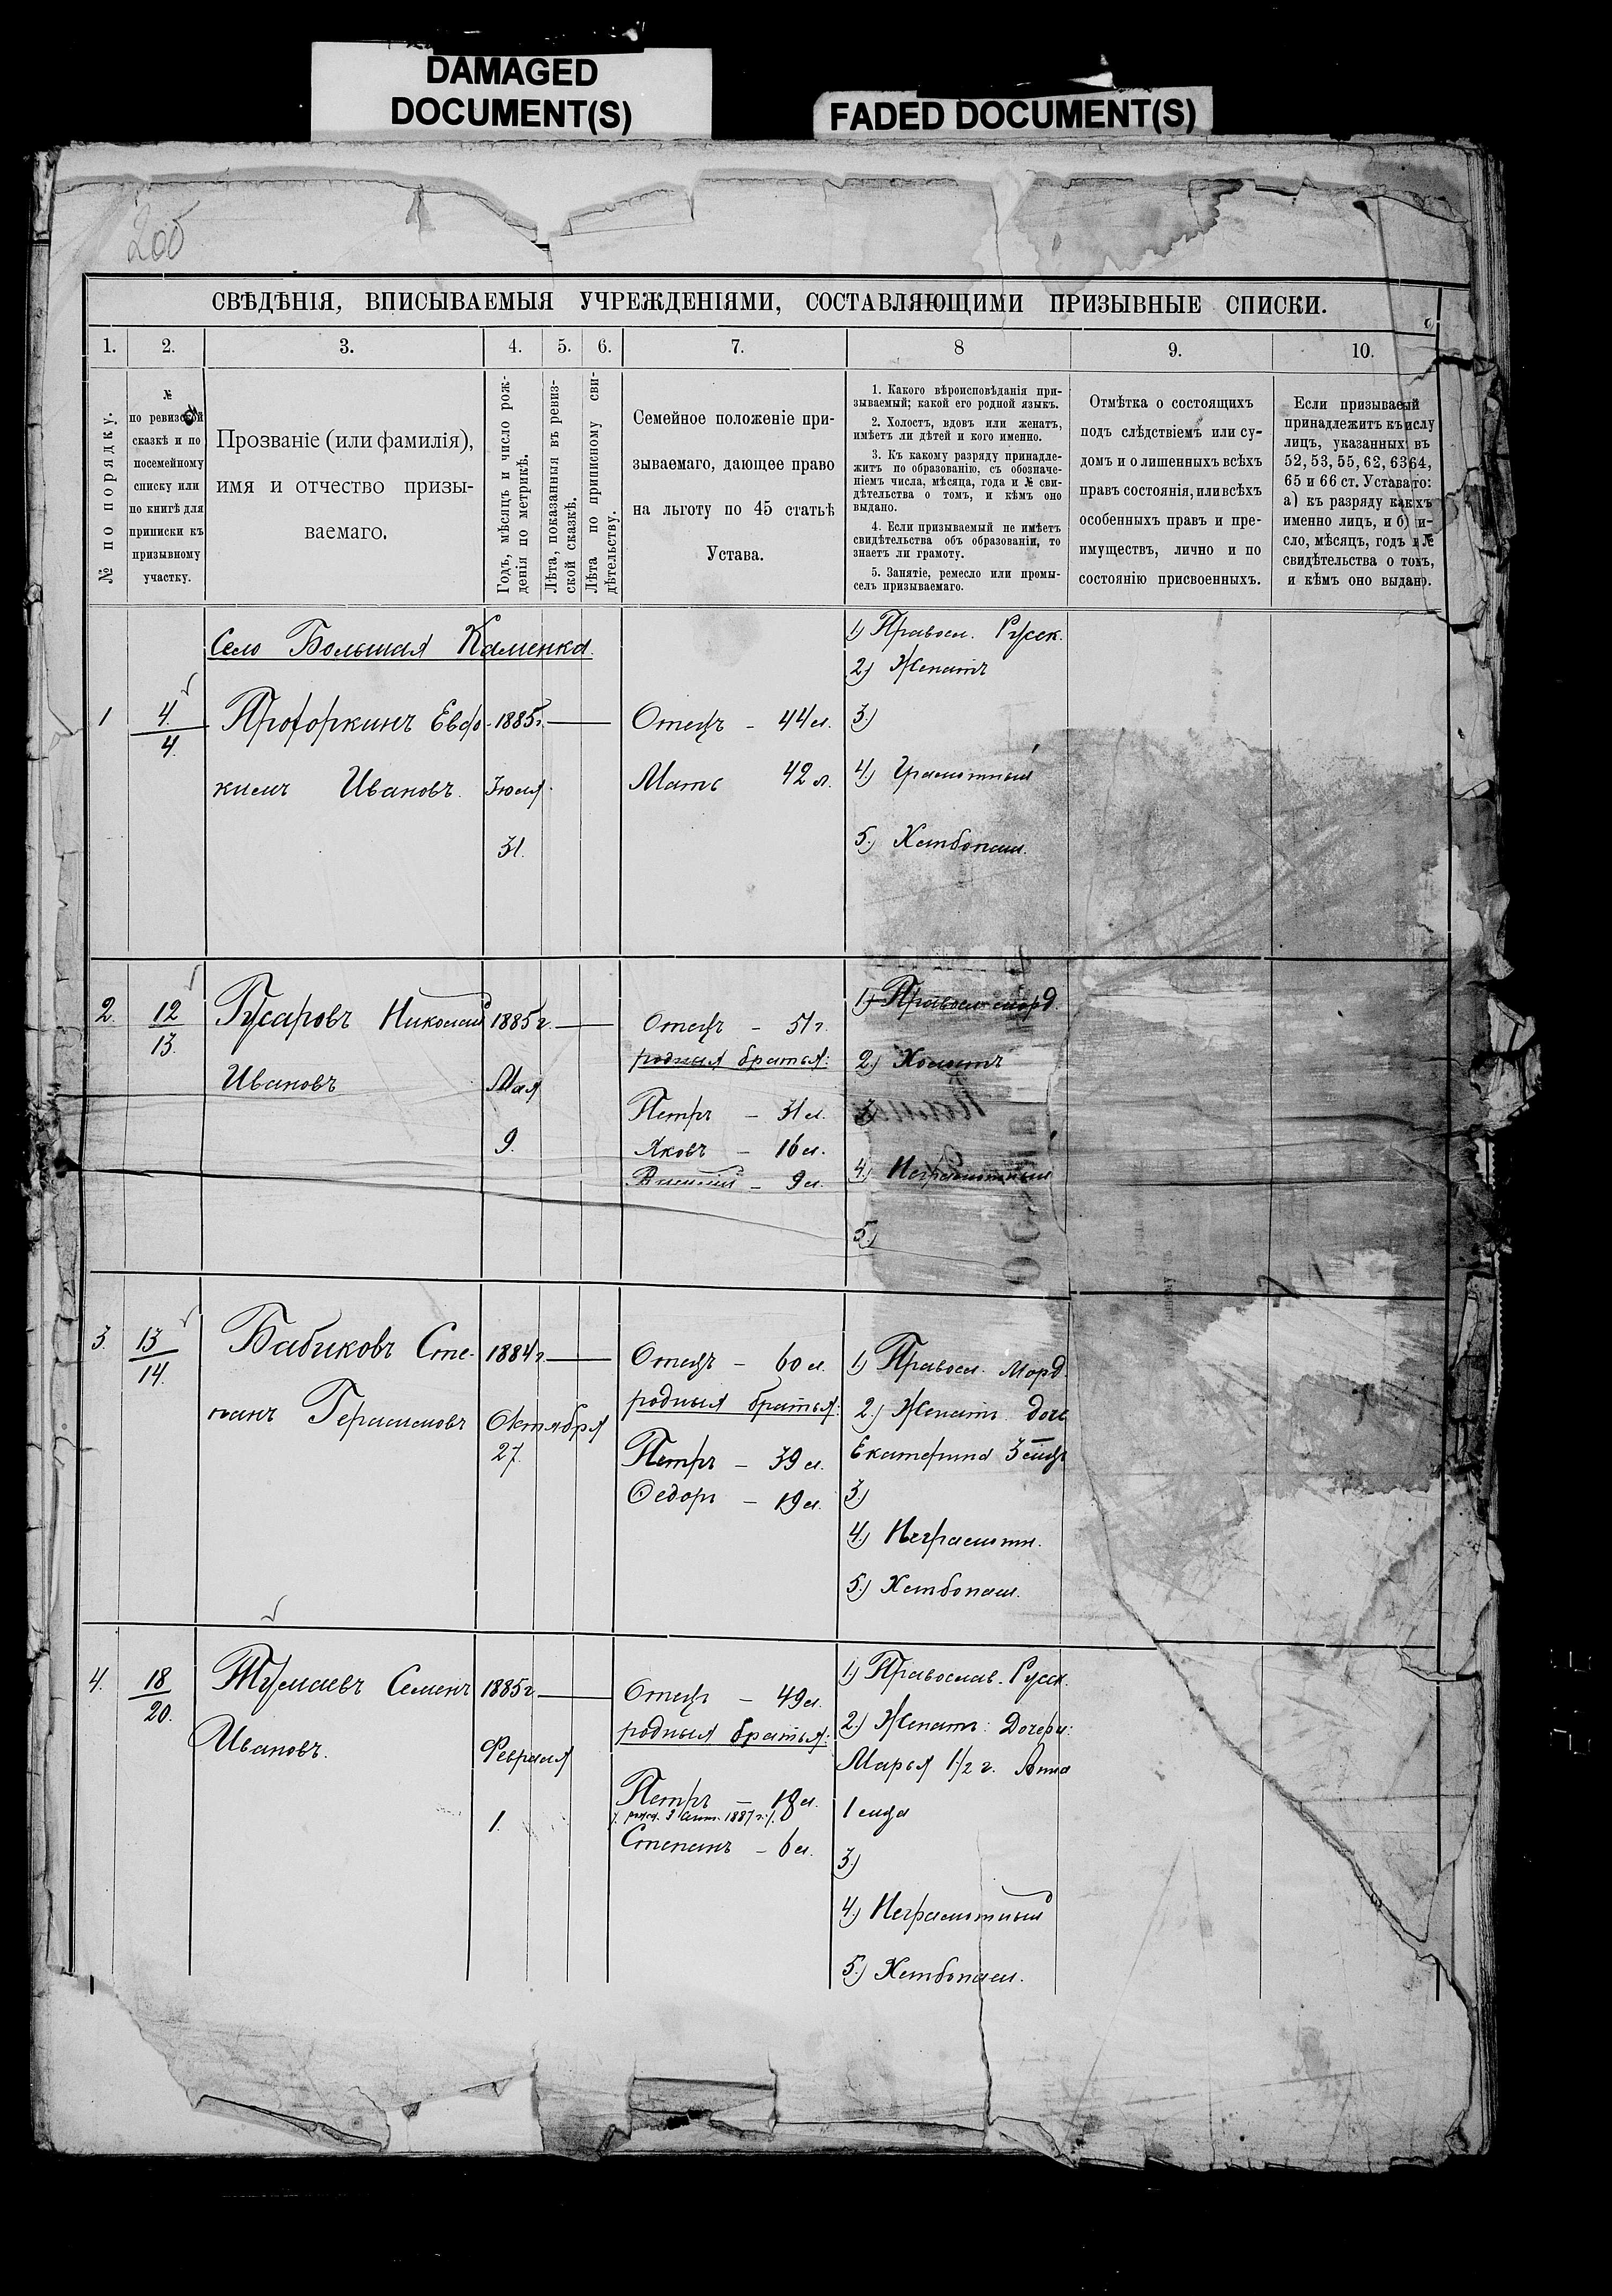 DAMAGED
DOCUMENT(S)
FADED DOCUMENT(S)
200
СВѢДѢНІЯ, ВПИСЫВАЕМЫЯ УЧРЕЖДЕНІЯМИ, СОСТАВЛЯЮЩИМИ ПРИЗЫВНЫЕ СПИСКИ.
1. 2. 3. 4. 5. 6. 7. 8 9. 10.
№ по порядку.
№
по ревизской
сказкѣ и по
посемейному
списку или
по книгѣ для
приписки къ
призывному
участку.
Прозваніе (или фамилія),
имя и отчество призы-
ваемаго.
Годъ, мѣсяцъ и число рож-
денія по метрикѣ.
Лѣта, показанныя въ ревиз-
ской сказкѣ.
Лѣта по приписному сви-
дѣтельству.
Семейное положеніе при-
зываемаго, дающее право
на льготу по 45 статьѣ
Устава.
1. Какого вѣроисповѣданія при-
зываемый; какой его родной языкъ.
2. Холостъ, вдовъ или женатъ,
имѣетъ ли дѣтей и кого именно.
3. Къ какому разряду принадле-
житъ по образованію, съ обозначе-
ніемъ числа, мѣсяца, года и № сви-
дѣтельства о томъ, и кѣмъ оно
выдано.
4. Если призываемый не имѣетъ
свидѣтельства объ образованіи, то
знаетъ ли грамоту.
5. Занятіе, ремесло или промы-
селъ призываемаго.
Отмѣтка о состоящихъ
подъ слѣдствіемъ или су-
домъ и о лишенныхъ всѣхъ
правъ состоянія, или всѣхъ
особенныхъ правъ и пре-
имуществъ, лично и по
состоянію присвоенныхъ.
Если призываемый
принадлежитъ къ числу
лицъ, указанныхъ въ
52, 53, 55, 62, 63 64,
65 и 66 ст. Устава то:
а) къ разряду какихъ
именно лицъ, и б) чи-
сло, мѣсяцъ, годъ и №
свидѣтельства о томъ,
и кѣмъ оно выдано.
Село Большая Каменка.
1
4.
4.
Евдо-
кимъ Ивановъ.
1885г.
Іюля
31.
Отецъ - 44 л.
Мать 42 л.
1) Правосл. Русск.
2) Женатъ
3)
4) Грамотный
5) Хлѣбопаш.
2.
12
13.
Гусаровъ Николай
Ивановъ
1885г.
Мая
9.
Отецъ - 51 г.
родныя братья:
Петръ - 31 л.
Яковъ - 16 л.
Василій - 9 л.
1) Правосл. морд.
2) Холостъ
3
4) Неграмотный
5)
3.
13
14.
Бабиковъ Сте-
панъ Герасимовъ
1884г.
Октября
27.
Отецъ - 60 л.
родныя братья:
Петръ - 39 л.
Ѳедоръ - 19 л.
1) Правосл. Морд.
2) Женатъ. дочь
Екатерина 3 мѣс
3)
4) Неграмотн.
5) Хлѣбопаш.
4.
18
20.
Тумаевъ Семенъ
Ивановъ.
1885г.
Февраля
1.
Отецъ - 49 л.
родныя братья:
Петръ - 18 л.
Степанъ - 6 л.
1) Православ. Русск.
2) Женатъ: Дочери:
Марья 1½ г. Анна
1 мѣсца
3)
4) Неграмотный
5) Хлѣбопаш.